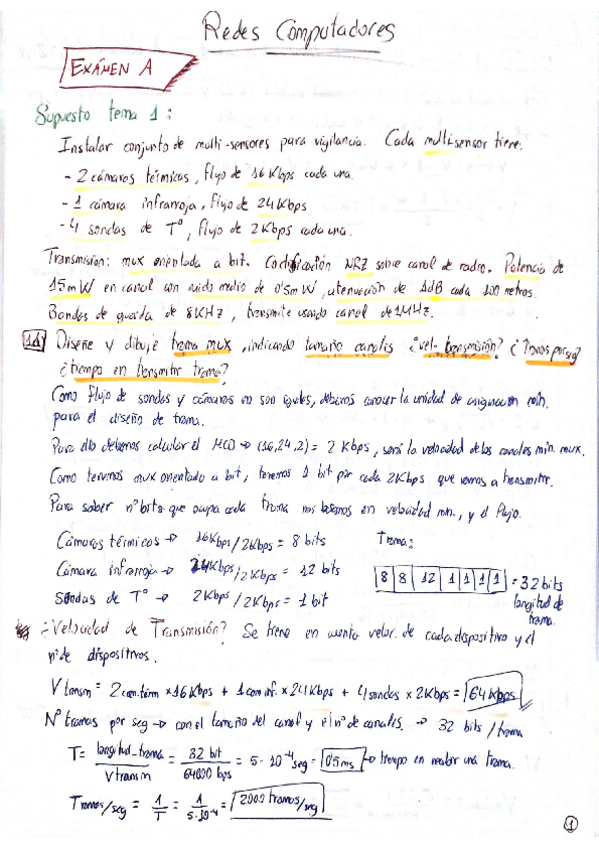 Redes Computadores
EXÁMEN A
Supuesto tema 1:
Instalar conjunto de multi-sensores para vigilancia. Cada multisensor tiene:
- 2 cámaras térmicas, flujo de 16 Kbps cada una.
- 1 cámara infrarroja, flujo de 24 Kbps
- 4 sondas de Tº, flujo de 2 Kbps cada una.
Transmisión: mux orientada a bit. Codificación NRZ sobre canal de radio. Potencia de
15 mW en canal con ruido medio de 0'5 mW, atenuación de 1dB cada 100 metros.
Bandas de guarda de 8KHZ, transmite usando canal de 1MHz.
1.1 Diseñe y dibuje trama mux, indicando tamaño canales ¿vel. transmisión? ¿Tramas por seg?
¿tiempo en transmitir trama?
Como flujo de sondas y cámaras no son iguales, debemos conocer la unidad de asignación min.
para el diseño de trama.
Para ello debemos calcular el MCD → (16,24,2) = 2 Kbps, será la velocidad de los canales min. mux.
Como tenemos mux orientado a bit, tenemos 1 bit por cada 2Kbps que vamos a transmitir.
Para saber nº bits que ocupa cada trama nos basamos en velocidad min., y el flujo.
Cámaras térmicas → 16Kbps/2Kbps = 8 bits
Trama:
Cámara infrarroja → 24Kbps/2Kbps = 12 bits
8 8 12 1 1 1 1 = 32 bits
Sondas de Tº → 2Kbps/2Kbps = 1 bit
longitud de
trama.
¿Velocidad de Transmisión? Se tiene en cuenta veloc. de cada dispositivo y el
nº de dispositivos.
V transm = 2 cam.térm × 16 Kbps + 1 cam inf. × 24 Kbps + 4 sondas × 2 Kbps = 64 Kbps
Nº tramas por seg → con el tamaño del canal y el nº de canales. → 32 bits/trama
T = longitud_trama / V transm = 32 bit / 64000 bps = 5·10⁻⁴ seg = 0'5 ms → tiempo en una trama.
Tramas/seg = 1/T = 1/5·10⁻⁴ = 2000 tramas/seg
1